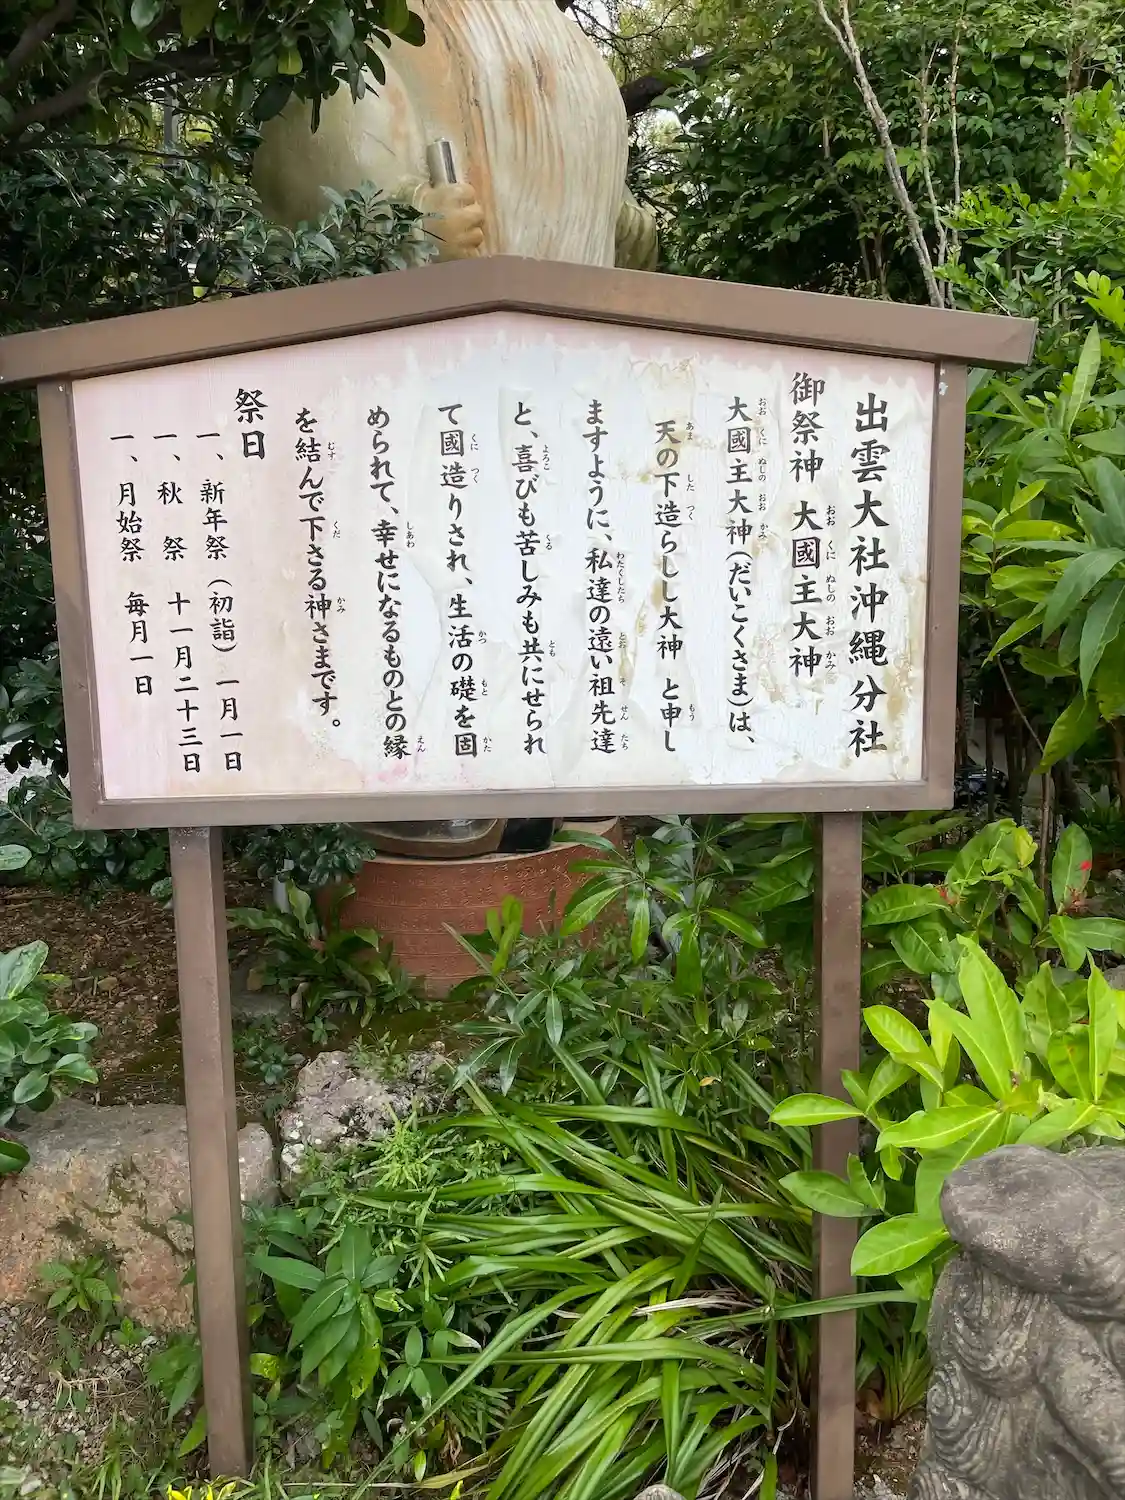 出雲大社沖縄分社
御祭神 大國主大神
大國主大神(だいこくさま)は、
天の下造らしし大神 と申し
ますように、私達の遠い祖先達
と、喜びも苦しみも共にせられ
て國造りされ、生活の礎を固
められて、幸せになるものとの縁
を結んで下さる神さまです。
祭日
一、新年祭(初詣)一月一日
一、秋 祭 十一月二十三日
一、月始祭 毎月一日